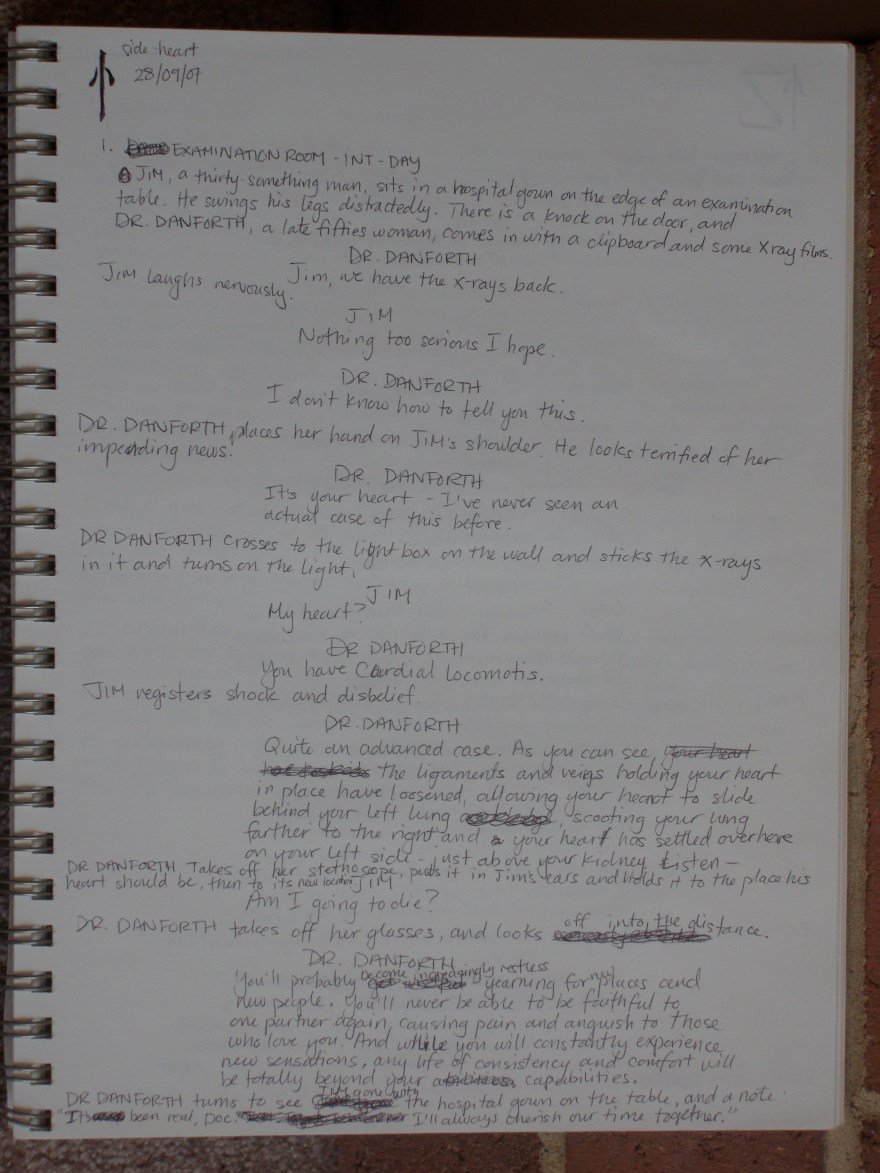 side-heart
小
28/09/07
1. EXAMINATION ROOM - INT - DAY
JIM, a thirty-something man, sits in a hospital gown on the edge of an examination
table. He swings his legs distractedly. There is a knock on the door, and
DR. DANFORTH, a late fifties woman, comes in with a clipboard and some X ray films.
DR. DANFORTH
Jim, we have the x-rays back.
JIM laughs nervously.
JIM
Nothing too serious I hope.
DR. DANFORTH
I don't know how to tell you this.
DR. DANFORTH places her hand on JIM's shoulder. He looks terrified of her
impending news.
DR. DANFORTH
It's your heart - I've never seen an
actual case of this before.
DR DANFORTH crosses to the light box on the wall and sticks the x-rays
in it and turns on the light.
JIM
My heart?
DR DANFORTH
You have Cardial Locomotis.
JIM registers shock and disbelief.
DR. DANFORTH
Quite an advanced case. As you can see, your heart
the ligaments and veins holding your heart
in place have loosened, allowing your heart to slide
behind your left lung, scooting your lung
farther to the right and your heart has settled over here
on your left side - just above your kidney. Listen -
DR DANFORTH takes off her stethoscope, puts it in Jim's ears and holds it to the place his
heart should be, then to its new location
JIM
Am I going to die?
DR. DANFORTH takes off her glasses, and looks off into the distance.
DR. DANFORTH
You'll probably become increasingly restless yearning for new places and
new people. You'll never be able to be faithful to
one partner again, causing pain and anguish to those
who love you. And while you will constantly experience
new sensations, any life of consistency and comfort will
be totally beyond your capabilities.
DR DANFORTH turns to see JIM's gone with the hospital gown on the table, and a note:
"It's been real, Doc. I'll always cherish our time together."